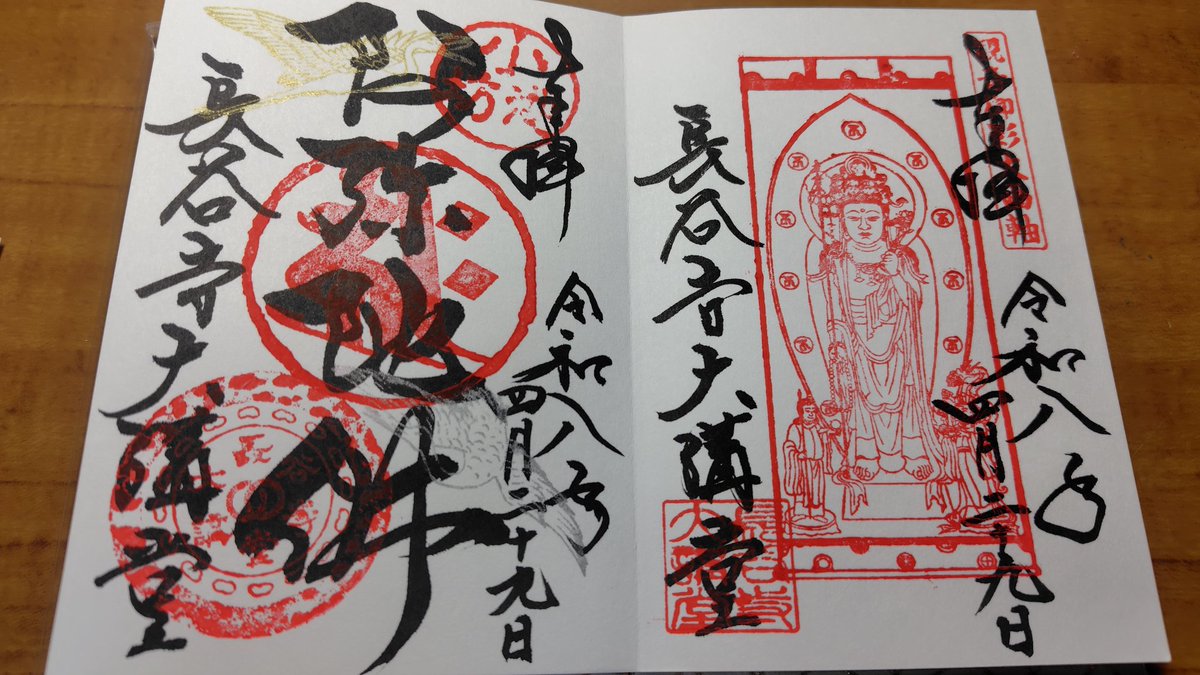 奉拝
令和八年
四月二十九日
長谷寺大講堂
長谷寺
大講堂
奉拝
令和八年
四月二十九日
阿弥陀佛
長谷寺大講堂